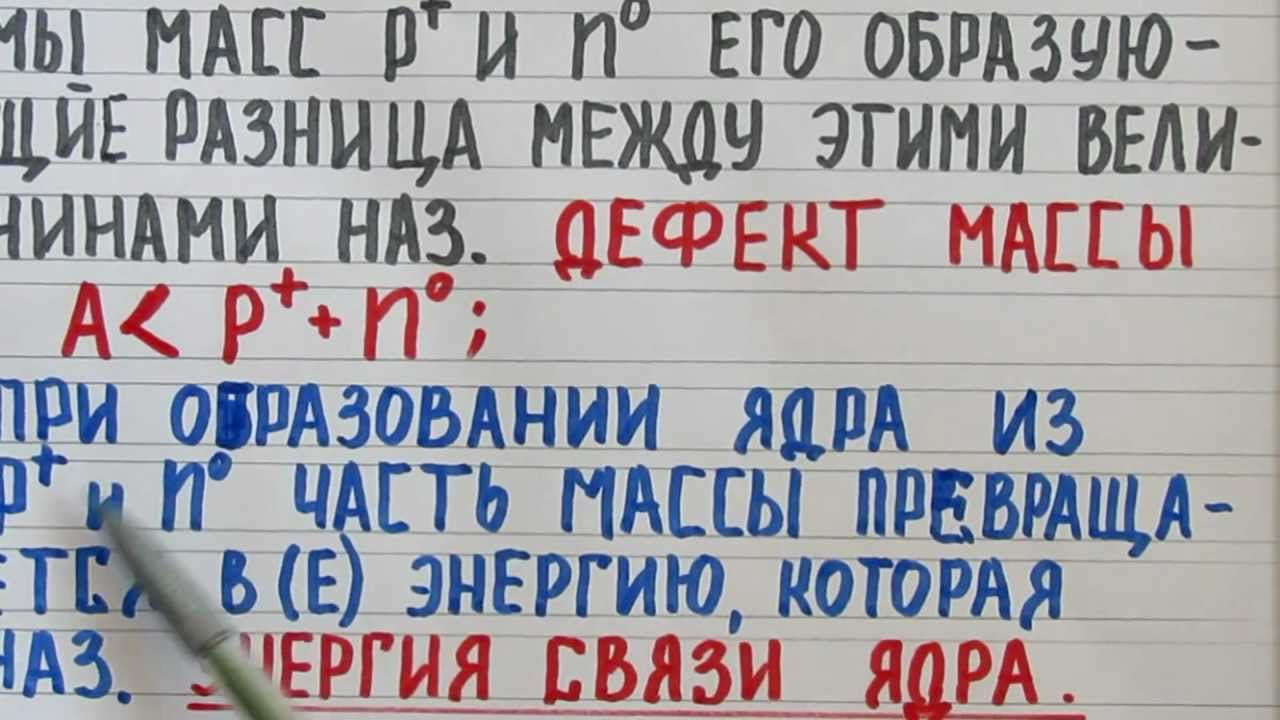 МЫ МАСС P⁺ И n⁰ ЕГО ОБРАЗУЮ-
ЩИЕ РАЗНИЦА МЕЖДУ ЭТИМИ ВЕЛИ-
ЧИНАМИ НАЗ. ДЕФЕКТ МАССЫ
A < P⁺ + n⁰;
ПРИ ОБРАЗОВАНИИ ЯДРА ИЗ
P⁺ и n⁰ ЧАСТЬ МАССЫ ПРЕВРАЩА-
ЕТСЯ В (Е) ЭНЕРГИЮ, КОТОРАЯ
НАЗ. ЭНЕРГИЯ СВЯЗИ ЯДРА.